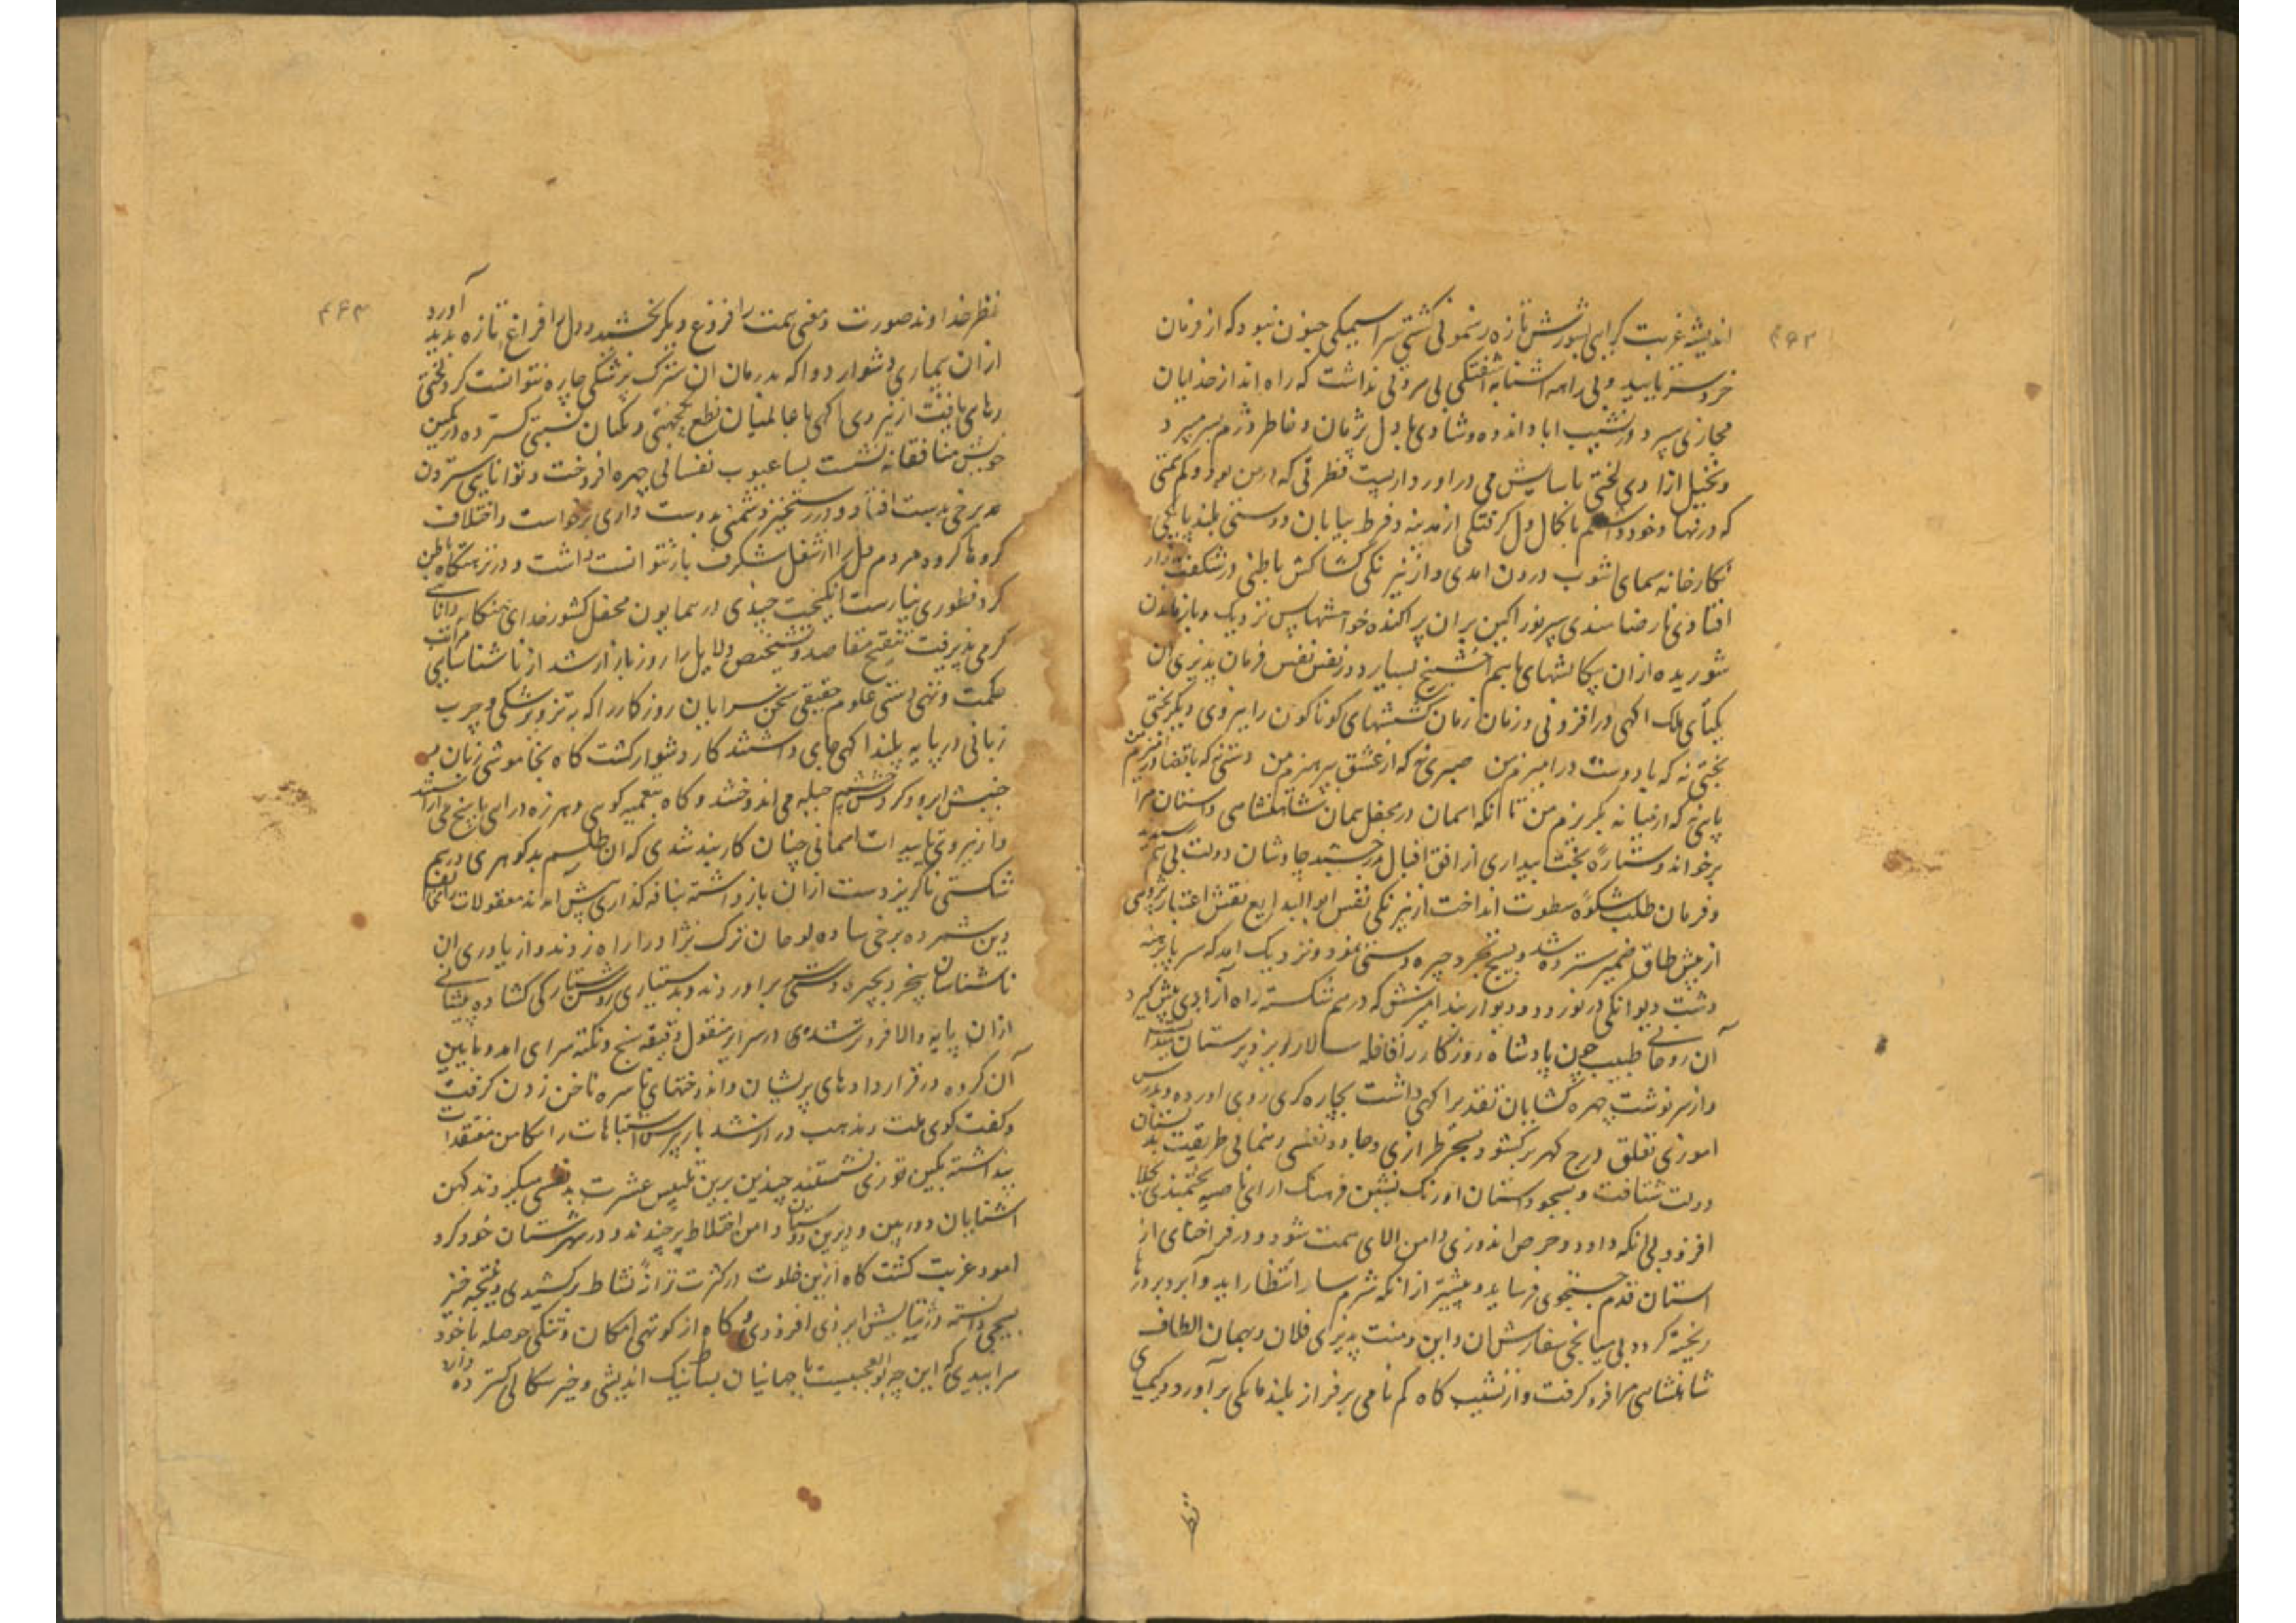 ۴۶۲
اندیشه غربت کرایی شورش تازه رهنمونی کشتی سراسیمکی جنون نبود که از فرمان
خرد سر تابید و بی راهه اشنا به آشفتکی بی مروتی نداشت که راه انداز خدایان
مجازی سپرد در نشیب اباد اندوه و شادی با دل پژمان و خاطر دژم بسر میبرد
و تخیل ازادی لختی باسایش می دراورد از پست فطرتی که از من بود و کم بختی
که در نهاد خود داشتم با کمال دل کرفتکی از مدینه و فرط بیابان دوستی بلند پایکی
نکارخانه سمای اشوب درون امدی و از نیرنکی کشاکش باطنی در شکفت زار
افتادی نارضامندی پیر نورآکین بران پراکنده خواهشها بس نزدیک و باز ماندن
شوریده ازان سکالشهای باهم آخشیج بسیار دور نفس نفس فرمان پذیری ان
یکتای ملک اکهی در افزونی و زمان زمان کششهای کوناکون را نیروی دیکر لختی
بختی نه که با دوست درامیزم من صبری نه که از عشق بپرهیزم من دستی نه که با قضا درآویزم من
پایی نه که از میانه بکریزم من تا انکه اسمان در محفل همان شاهنشاهی داستان مرا
برخواند و ستارهٔ بخت بیداری از افق اقبال درخشید چاوشان دولت بی هم رسیدند
و فرمان طلب شکوه سطوت انداخت از نیرنکی نفس ابوالبدایع نقش اعتبار پژوهی
از پیش طاق ضمیر سترده شد و بسیج تجرد چیره دستی نمود و نزدیک امد که سر پا برهنه
دشت دیوانکی در نوردد و دیواربند امیزش که در هم شکسته راه آزادی پیش کیرد
آن روحانی طبیب چون پادشاه روزکار را قافله سالار ایزد پرستان
و از سرنوشت چهره کشایان تقدیر اکهی داشت بچاره کری روی اورده و بدرس
اموزی تعلق درج کهر برکشود بسحر طرازی و جادو نفسی رهنمایی طریقت بدبستان
دولت شتافت و بسجود استان اورنک نشین فرهنک ارای ناصیه بختمندی
افزود بی انکه داود و حرص اندوزی دامن الای همت شود و در فراخنای از
استان قدم جستجوی فرساید و پیشتر از انکه شرمسار انتظار اید و آبرو بر درها
ریخته کردد بی میانجی سفارش ان و این و منت پذیری فلان و بهمان الطاف
شاهنشاهی مرا فرو کرفت و از نشیب کاه کم نامی بر فراز بلند مایکی برآورد و کیمیای
نظر
۴۶۳
نظر خداوند صورت و معنی همت را فروغ دیکر بخشید و دل را فراغ تازه پدید آورد
ازان بیماری دشوار دوا که بدرمان ان سترک پزشکی چاره نتوانست کرد لختی
رهای یافت از نیروی اکهی با عالمیان نطع یکجهتی و یکسان نسبتی کسترده در کمین
خویش منافقانه نشست بسا عیوب نفسانی چهره افروخت و توانایی ستردن
برخی بدست افتاد و در رستخیز دشمنی بدوست داری برخواست و اختلاف
کروها کروه مردم دل را از شغل شکرف باز نتوانست داشت و در نزهتکاه باطن
کرد فطوری نیارست انکیخت چندی در همایون محفل کشور خدای هنکامه دانایی
کرمی پذیرفت تنقیح مقاصد و تشخیص دلایل را روز بازار شد از ناشناسایی مراتب
حکمت و تهی دستی علوم حقیقی سخن سرایان روزکار را که به تزویر پزشکی و چرب
زبانی در پایه بلند اکهی جای داشتند کار دشوار کشت کاه بخاموشی زبان و
جنبش ابرو و کردش چشم حیله می اندوختند و کاه بتعمیه کوی و هرزه درایی پاسخ می اراستند
و از نیروی تایید اسمانی چنان کاربند شدی که ان طلسم بدکوهری درهم
شکستی ناکریز دست ازان باز داشته بنافه کذاری پیش آمدند معقولات را مخالف
دین شمرده برخی ساده لوحان ترک نژاد را از راه زدند و از یاوری ان
ناشناسان تجرد بچیره دستی براوردند و بدستیاری روشن ستارکی کشاده پیشانی
ازان پایه والا فروتر شده در سرابر منقول دقیقه سنج و نکته سرای امد و بایین
آن کروه در قراردادهای پریشان و اندوختهای ناسره ناخن زدن کرفت
و کفت کوی ملت و مذهب دراز شد بازپرس اشتباهات را مکامن معتقدات
پنداشته بکین توزی نشستند چندین برین تلبیس عشرت بدنفسی میکزدند کهن
اشنایان دوربین و دیرین دوستان دامن اختلاط برچیدند و در شهرستان خود کرد
امود غربت کشت کاه ازین خلوت در کثرت ترانهٔ نشاط برکشیدی و نتیجه خیر
بسیجی دانسته در نیایش ایزدی افزودی و کاه از کوتهی امکان و تنکی حوصله با خود
سراییدی که این چه بوالعجبیست با جهانیان بساط نیک اندیشی و خیر سکالی کسترده دارد